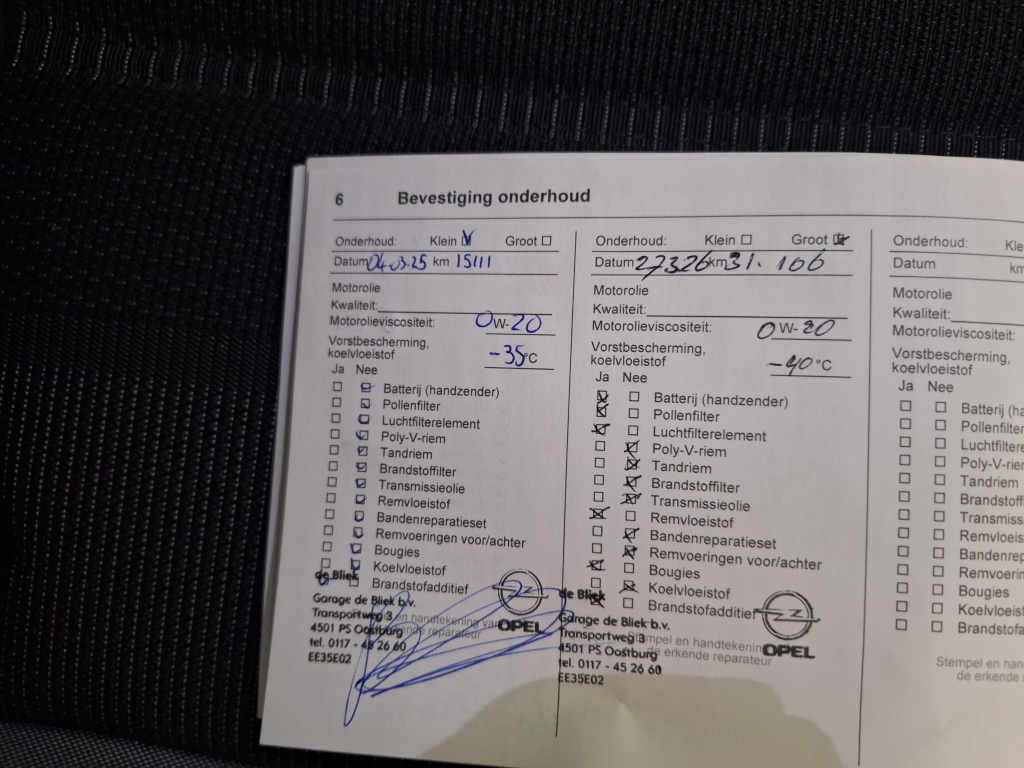 6 Bevestiging onderhoud
Onderhoud: Klein Groot
Datum 04-03-25 km 15111
Motorolie
Kwaliteit:
Motorolieviscositeit: 0W-20
Vorstbescherming,
koelvloeistof -35°C
Ja Nee
Batterij (handzender)
Pollenfilter
Luchtfilterelement
Poly-V-riem
Tandriem
Brandstoffilter
Transmissieolie
Remvloeistof
Bandenreparatieset
Remvoeringen voor/achter
Bougies
Koelvloistof
Brandstofadditief
de Bliek
Garage de Bliek b.v.
Transportweg 3
en handtekening van
4501 PS Oostburg
erkende reparateur
tel. 0117 - 45 26 60
EE35E02
OPEL
Onderhoud: Klein Groot
Datum 27326 km 31.106
Motorolie
Kwaliteit:
Motorolieviscositeit: 0W-20
Vorstbescherming,
koelvloeistof -40°C
Ja Nee
Batterij (handzender)
Pollenfilter
Luchtfilterelement
Poly-V-riem
Tandriem
Brandstoffilter
Transmissieolie
Remvloeistof
Bandenreparatieset
Remvoeringen voor/achter
Bougies
Koelvloistof
Brandstofadditief
de Bliek
Garage de Bliek b.v.
Transportweg 3
Stempel en handtekening
4501 PS Oostburg
de erkende reparateur
tel. 0117 - 45 26 60
EE35E02
OPEL
Onderhoud: Kle
Datum km
Motorolie
Kwaliteit:
Motorolieviscositeit:
Vorstbescherming,
koelvloeistof
Ja Nee
Batterij (ha
Pollenfilter
Luchtfiltere
Poly-V-rie
Tandriem
Brandstoff
Transmiss
Remvloeis
Bandenrep
Remvoerin
Bougies
Koelvloist
Brandstofa
Stempel en han
de erkende